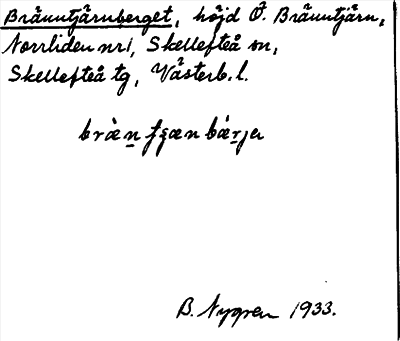 Brännтjärnberget, höjd Ö. Bränntjärn,
Norrliden nr 1, Skellefteå sn,
Skellefteå tg, Västerb. l.
B. Nygren 1933.